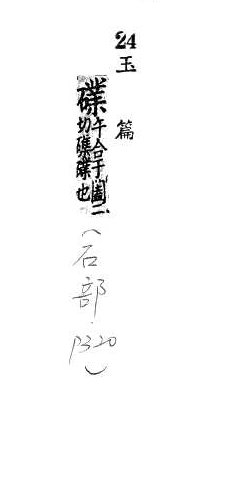 24
玉篇
磼午合于闔二
切磼磼也
(石部.P320)